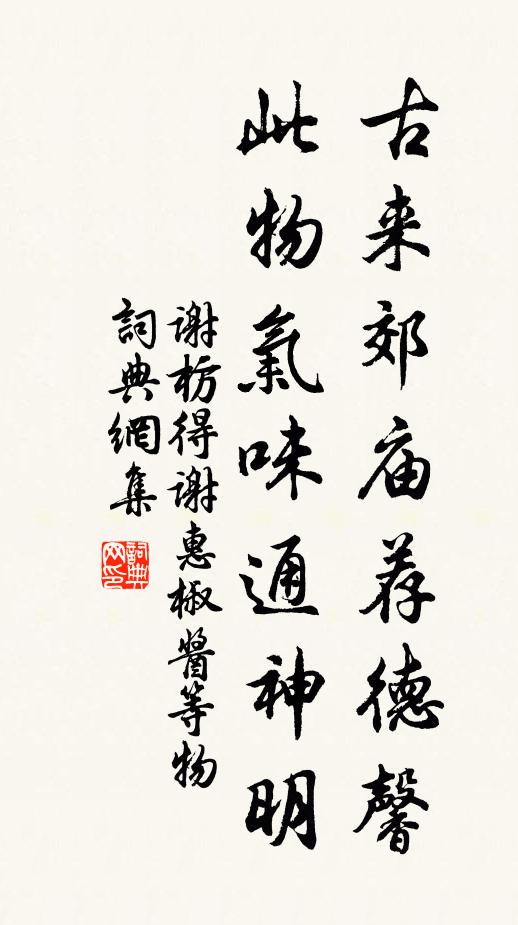 古来郊庙荐德馨
此物氣味通神明
谢枋得谢惠椒醬等物
詞典網集
詞典
网印